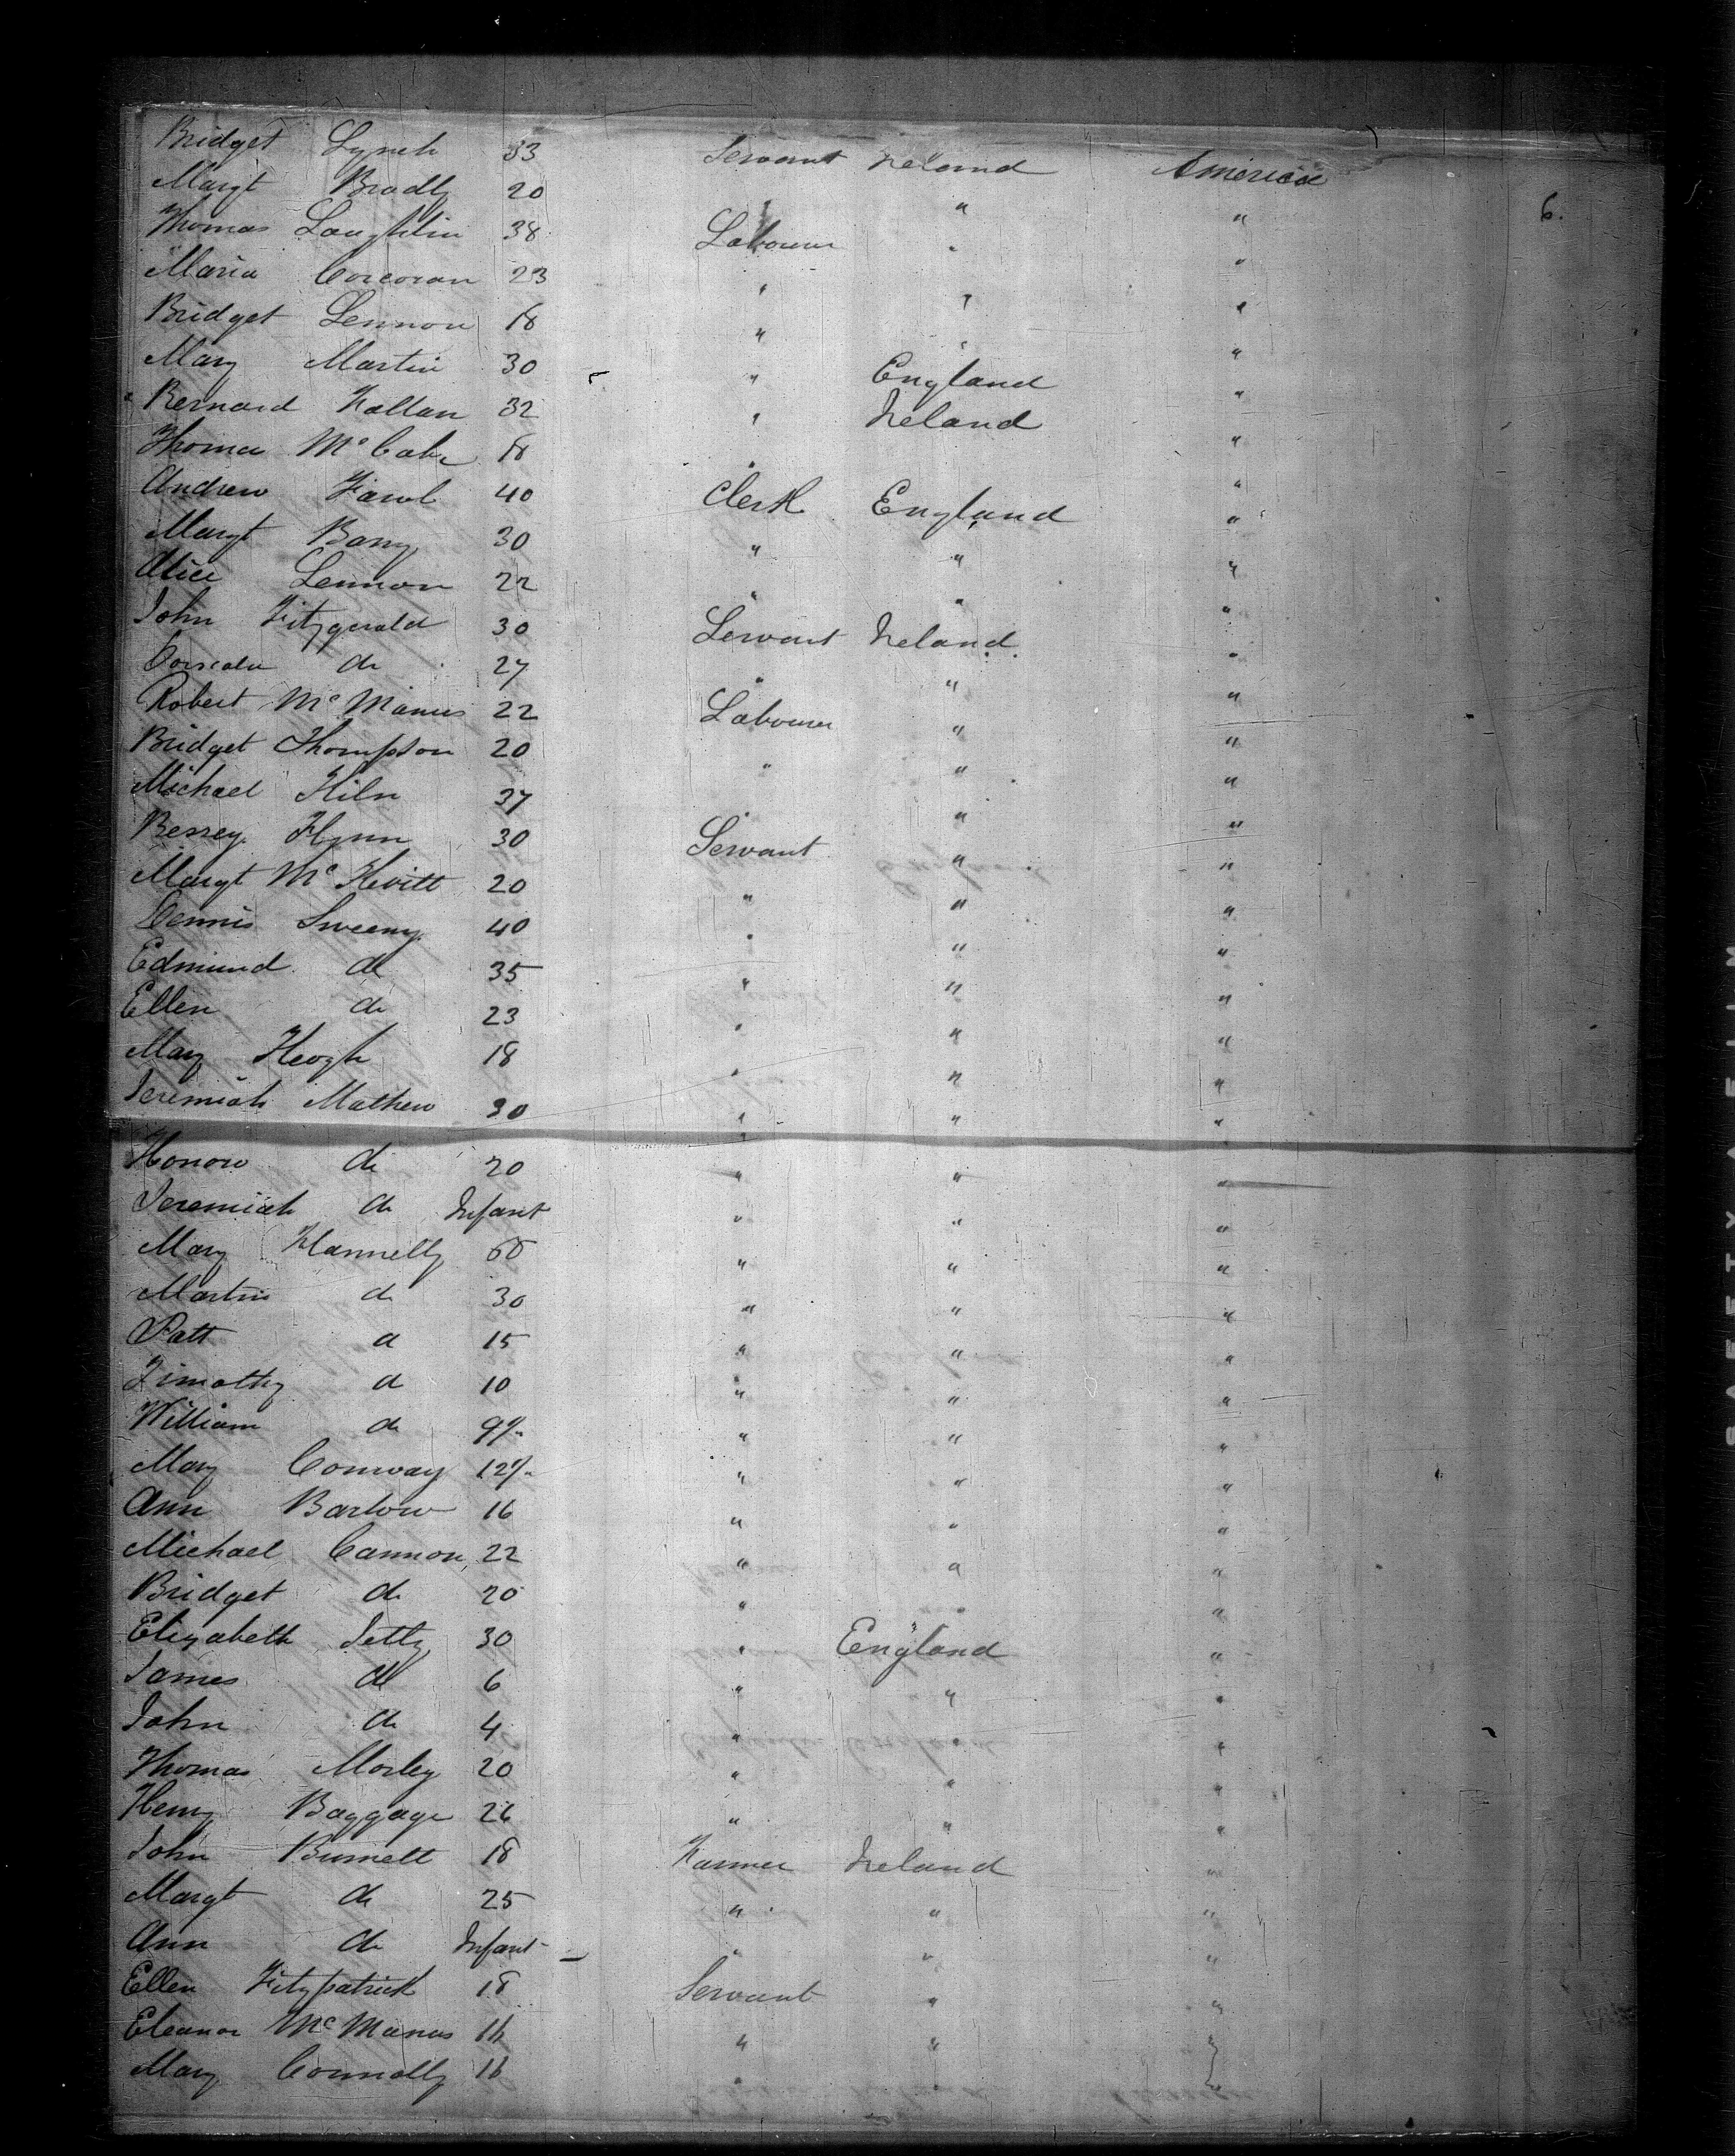 Bridget Lynch 33 Servant Ireland America
6.
Margt Bradly 20 " "
Thomas Laughlin 38 Labourer " "
Maria Corcoran 23 " " "
Bridget Lennon 18 " " "
Mary Martin 30 " England "
Bernard 32 " Ireland "
Thomas McCabe 18 " "
Andrew 40 Clerk England "
Margt Barry 30 " " "
Alice Lennon 22 " " "
John Fitzgerald 30 Servant Ireland "
do 27 " " "
Robert McManus 22 Labourer " "
Bridget Thompson 20 " " "
Michael 37 " " "
Bessey Flynn 30 Servant " "
Margt McKevitt 20 " " "
Dennis Sweeny 40 " " "
Edmund do 35 " " "
Ellen do 23 " " "
Mary Keogh 18 " " "
Jeremiah Mathew 30 " " "
Honour do 20 " " "
Jeremiah do Infant " " "
Mary Flannelly " " "
Martin do 30 " " "
Patt do 15 " " "
Timothy do 10 " " "
William do " " "
Mary Conway " " "
Ann Barlow 16 " " "
Michael Cannon 22 " " "
Bridget do 20 " " "
Elizabeth 30 " England "
James do 6 " " "
John do 4 " " "
Thomas Morley 20 " " "
Henry Baggage 26 " " "
John Burnett 18 Farmer Ireland "
Margt do 25 " " "
Ann do Infant " " "
Ellen Fitzpatrick 18 Servant " "
Eleanor McManus 16 " " "
Mary Connolly 16 " " "